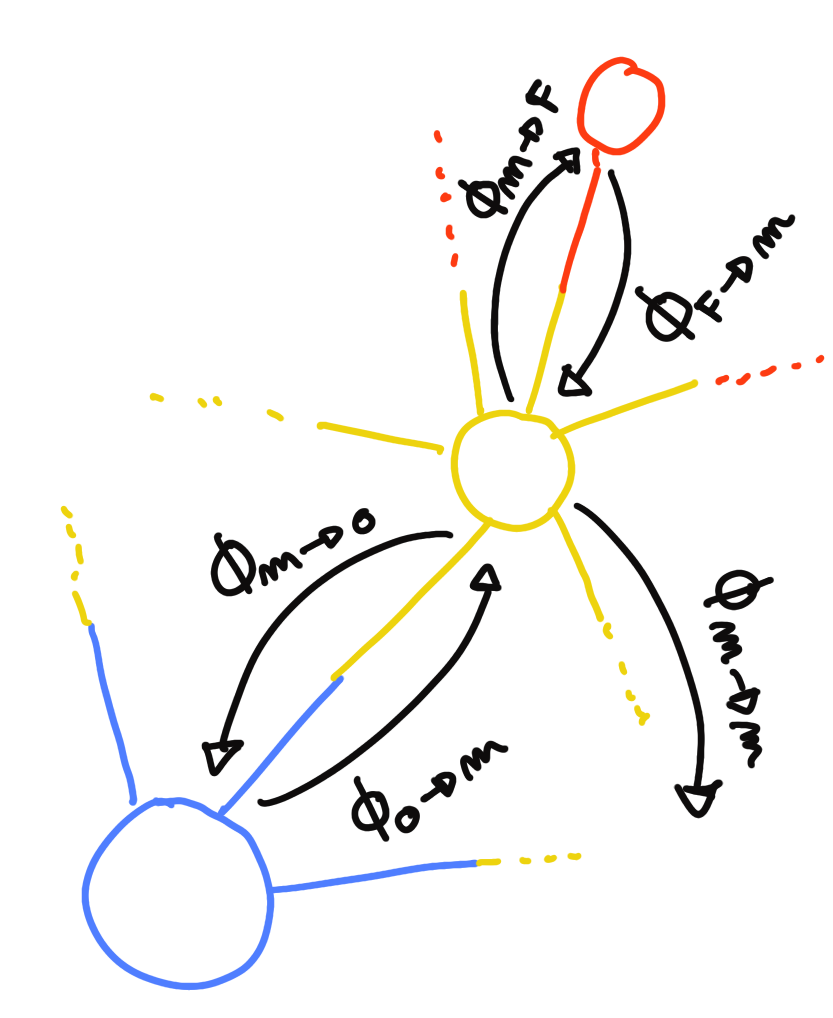 ϕm→F
ϕF→m
ϕm→o
ϕm→m
ϕo→m